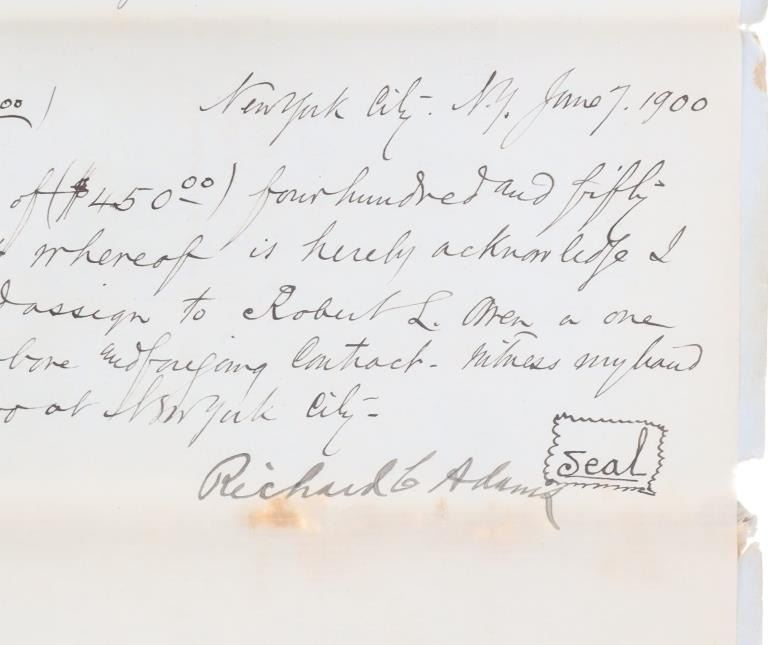 00) New York City. N.Y. June 7. 1900
of ($450.00) four hundred and fifty
whereof is hereby acknowledge I
assign to Robert L. Owen a one
and foregoing Contract - Witness my hand
at New York City -
Seal
Richard C Adams